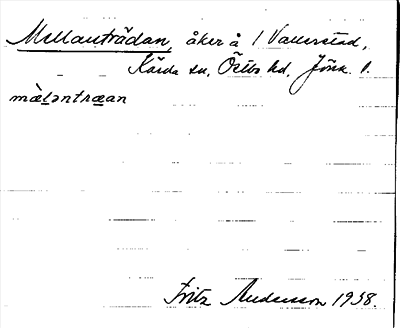 Mellanträdan, åker å 1 Vallerstad,
Kärda sn, Östbo hd, Jönk. l.
mὰləntræan
Fritz Andersson 1938.